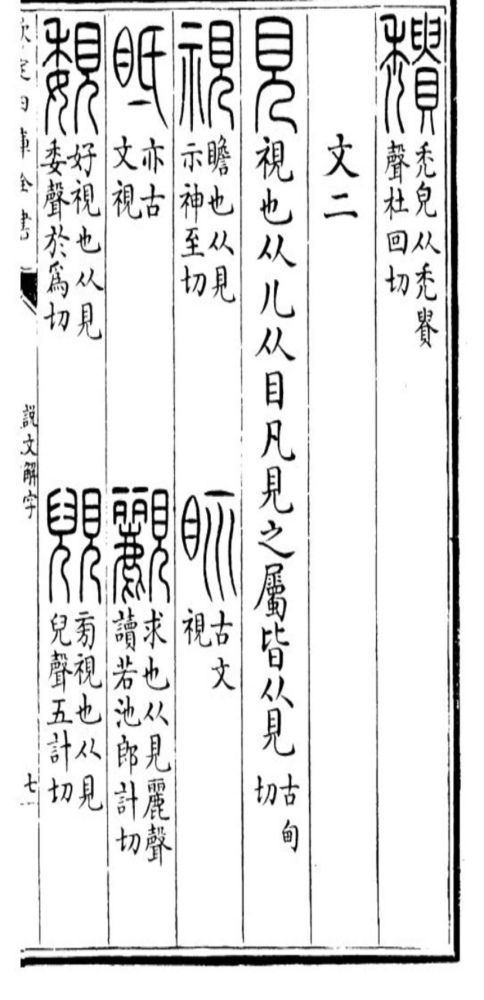 穨
禿皃从禿貴
聲杜回切
文二
見視也从儿从目凡見之屬皆从見
古甸
切
視
瞻也从見
示神至切
眎
古文
視
眡
亦古
文視
䚕
求也从見麗聲
讀若池郎計切
覣
好視也从見
委聲於為切
㫄視也从見
兒聲五計切
欽定四庫全書
說文解字
七